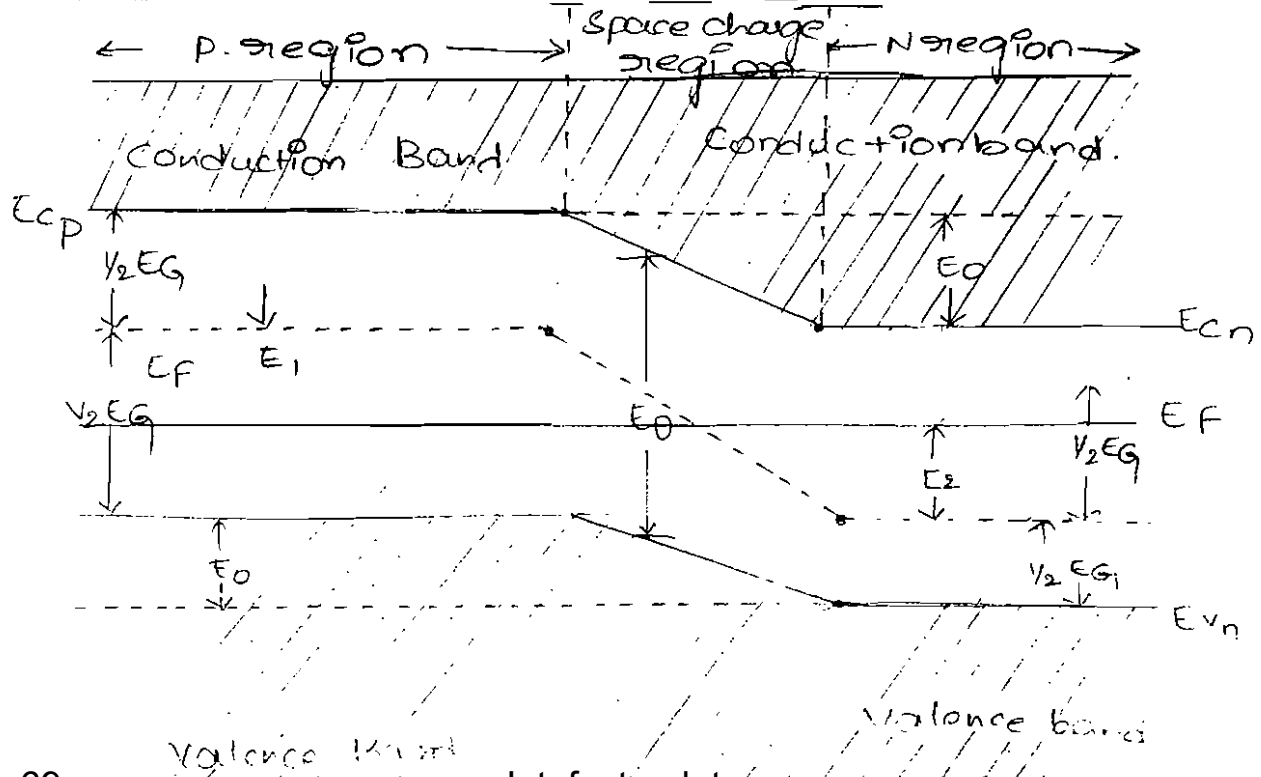 ← P. region → Space charge ← N region →
region
Conduction Band Conduction band.
Ecp
½ EG E0
Ecn
EF E1
½ EG E0 EF
½ EG
E2
E0 ½ EG
Evn
Valence band
Valence